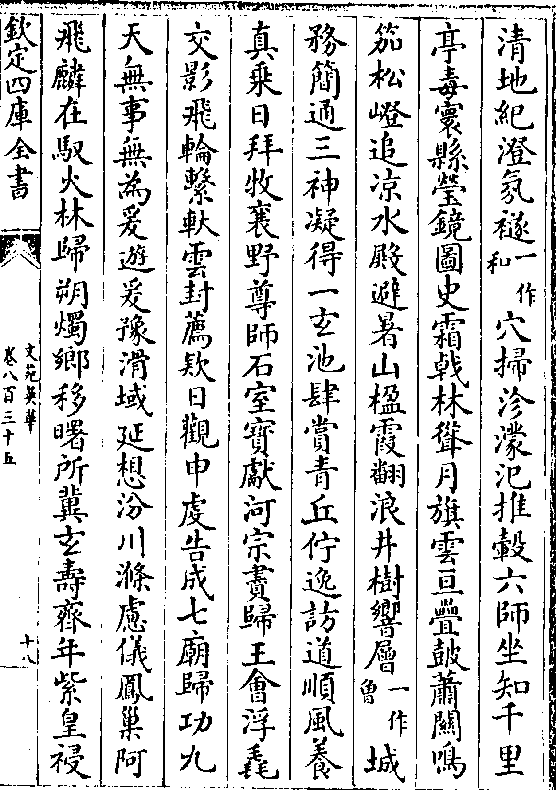 清地紀澄氛禭一作和穴掃沴濛汜推轂六師坐知千里
亭毒寰縣瑩鏡圖史霜戟林聳月旗雲亘疊鼓蕭關鳴
笳松嶝追凉水殿避暑山楹霞翻浪井樹響層一作魯城
務簡通三神凝得一玄池肆賞青丘佇逸訪道順風養
真乗日拜牧襄野尊師石室寳獻河宗賮歸王會浮毳
交影飛輪繫軑雲封薦欵日觀申虔告成七廟歸功九
天無事無為爰遊爰豫滑域延想汾川滌慮儀鳳巢阿
飛麟在馭火林歸朔燭鄉移曙所冀玄壽齊年紫皇祲
欽定四庫全書
文苑英華
卷八百三十五
十八